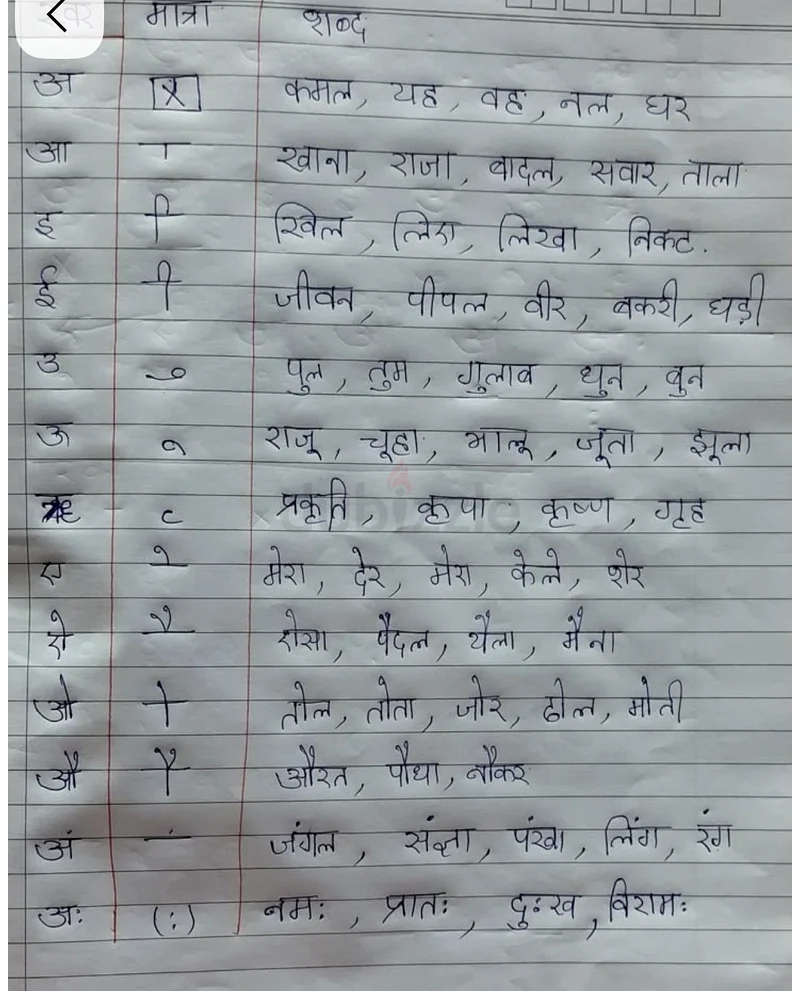 स्वर मात्रा शब्द
अ x कमल, यह, वह, नल, घर
आ ा खाना, राजा, बादल, सवार, ताला
इ ि खिल, लिए, लिखा, निकट.
ई ी जीवन, पीपल, वीर, बकरी, घड़ी
उ ु पुल, तुम, गुलाब, धुन, बुन
ऊ ू राजू, चूहा, भालू, जूता, झूला
ऋ ृ प्रकृति, कृपा, कृष्ण, गृह
ए े मेरा, देर, मेरा, केले, शेर
ऐ ै ऐसा, पैदल, थैला, मैना
ओ ो तोल, तोता, जोर, ढोल, मोती
औ ौ औरत, पौधा, नौकर
अं ं जंगल, संज्ञा, पंखा, लिंग, रंग
अः (:) नमः, प्रातः, दुःख, विरामः